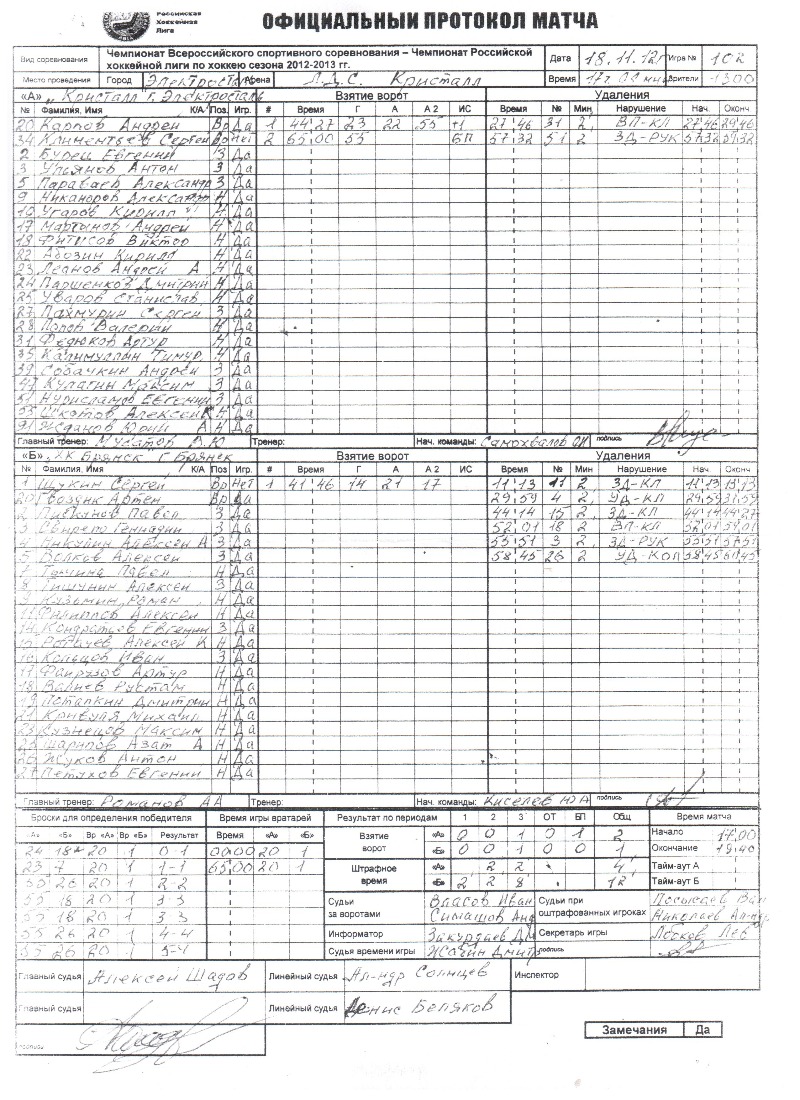 Российская
Хоккейная
Лига
ОФИЦИАЛЬНЫЙ ПРОТОКОЛ МАТЧА
Вид соревнования Чемпионат Всероссийского спортивного соревнования – Чемпионат Российской хоккейной лиги по хоккею сезона 2012-2013 гг. Дата 18.11.12 Игра №
Место проведения Город Электросталь Арена Л.Д.С. Кристалл Время Зрители 1300
«А» „Кристалл" г. Электросталь Взятие ворот Удаления
№ Фамилия, Имя К/А Поз. Игр. # Время Г А А 2 ИС Время № Мин. Нарушение Нач. Оконч.
20 Карпов Андрей Вр Да 1 44 27 23 22 55 +1 27 46 31 2 ВП-КЛ 27 46 29 46
34 Климентьев Сергей Вр Нет 2 65 00 55 БП 57 32 51 2 ЗД-РУК 57 32 59 32
2 Бурец Евгений З Да
3 Ульянов Антон З Да
5 Александр З Да
9 Никаноров Александр Н Да
10 Угаров Кирилл Н Да
17 Мартынов Андрей Н Да
18 Фитисов Виктор Н Да
22 Абозин Кирилл Н Да
23 Леанов Андрей А Н Да
24 Паршенков Дмитрий Н Да
25 Уваров Станислав Н Да
27 Пахмурин Сергей З Да
28 Попов Валерий Н Да
31 Федюков Артур Н Да
35 Калимуллин Тимур Н Да
39 Собачкин Андрей З Да
47 Кулагин Максим З Да
51 Нурисламов Евгений З Да
55 Шкотов Алексей К Н Да
91 Жданов Юрий А Н Да
Главный тренер: Мусатов Тренер: Нач. команды: Самохвалов подпись
«Б» „ХК Брянск" г Брянск Взятие ворот Удаления
№ Фамилия, Имя К/А Поз Игр. # Время Г А А 2 ИС Время № Мин Нарушение Нач. Оконч.
1 Щукин Сергей Вр Нет 1 41 46 14 21 17 11 13 11 2 ЗД-КЛ 11 13 13 13
20 Гвоздик Артем Вр Да 29 59 4 2 УД-КЛ 29 59 31 59
2 Павел З Да 44 14 15 2 ЗД-КЛ 44 14 44 27
3 Геннадий З Да 52 01 18 2 ВП-КЛ 52 01 54 01
4 Алексей А З Да 55 51 3 2 ЗД-РУК 55 51 57 51
5 Волков Алексей З Да 58 45 26 2 УД-КОЛ 58 45
7 Павел Н Да
8 Тишунин Алексей З Да
9 Кузьмин Роман Н Да
11 Филиппов Алексей Н Да
14 Кондратьев Евгений З Да
15 Рогачев Алексей К Н Да
16 Кольцов Иван З Да
17 Фаирузов Артур Н Да
18 Валиев Рустам Н Да
19 Потапкин Дмитрий Н Да
21 Кривуля Михаил Н Да
23 Кузнецов Максим Н Да
25 Шарипов Азат А Н Да
26 Жуков Антон Н Да
27 Петухов Евгений Н Да
Главный тренер: Романов АА Тренер: Нач. команды: Киселев ЮА подпись
Броски для определения победителя Время игры вратарей Результат по периодам 1 2 3 ОТ БП Общ Время матча
«А» «Б» Вр «А» Вр «Б» Результат Время «А» «Б» Взятие ворот «А» 0 0 1 0 1 2 Начало 17.00
24 18 20 1 0-1 00.00 20 1 «Б» 0 0 1 0 0 1 Окончание 19.40
23 7 20 1 1-1 65.00 20 1 Штрафное время «А» 2 2 4 Тайм-аут А
55 26 20 1 2-2 «Б» 2 2 8 12 Тайм-аут Б
55 18 20 1 3-3 Судьи за воротами Власов Иван Судьи при оштрафованных игроках
55 18 20 1 3-3 Симашов Николаев
55 26 20 1 4-4 Информатор Закурдаев Секретарь игры Лобков Лев
55 26 20 1 5-4 Судья времени игры подпись
Главный судья Алексей Шадов Линейный судья Ал-ндр Солнцев Инспектор
Главный судья Линейный судья Денис Беляков
Замечания Да
подпись